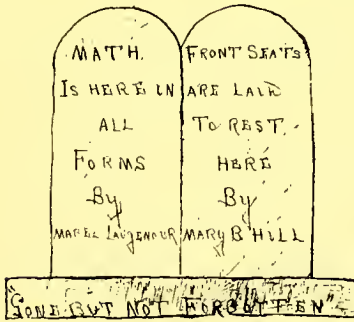 MATH.
IS HERE IN
ALL
FORMS
By
MABEL LAUGENOUR
FRONT SEATS
ARE LAID
TO REST
HERE
By
MARY B HILL
"GONE BUT NOT FORGOTTEN"